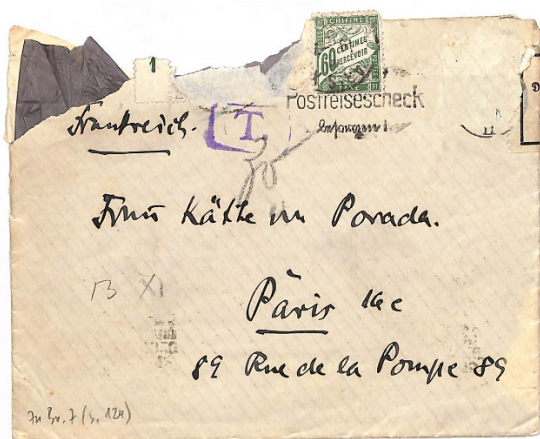 1
CHIFFRE
60 CENTIMES
A PERCEVOIR
Postreisescheck
besorgen!
Frankreich.
T.
30
Frau Käthe von Porada.
13 XI
Paris 16e
89 Rue de la Pompe 89
Zu Br. 7 (S. 124)